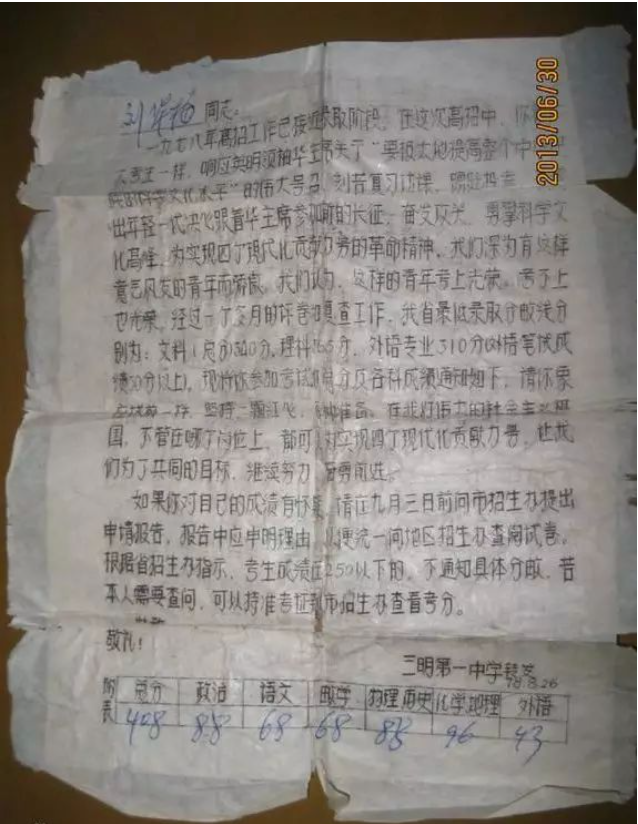 2013/06/30
刘华 同志:
一九七八年高招工作已接近录取阶段。在这次高招中,你
大考生一样,响应英明领袖华主席关于"要极大地提高整个中
科学文化水平"的伟大号召,刻苦复习功课,踊跃报考,
出年轻一代决心跟着华主席参加新的长征,奋发攻关,勇攀科学文
化高峰,为实现四个现代化贡献力量的革命精神。我们深为有这样
意气风发的青年而骄傲。我们认为,这样的青年考上光荣,考不上
也光荣。经过一个多月的评卷和复查工作,我省最低录取分数线分
别为:文科(总分)300分,理科 分,外语专业310分(外语笔试成
绩50分以上)。现将你参加考试的总分及各科成绩通知如下,请你象
一样,坚持一颗红心, 种准备,在我们伟大的社会主义祖
国,不管在哪个岗位上,都可以为实现四个现代化贡献力量,让我
们为了共同的目标,继续努力,奋勇前进。
如果你对自己的成绩有怀疑,请在九月三日前向市招生办提出
申请报告,报告中应申明理由,以便统一向地区招生办查阅试卷。
根据省招生办指示,考生成绩在250以下的,不通知具体分数,若
本人需要查问,可以持准考证到市招生办查看考分。
敬礼!
三明第一中学转发
78.8.26
附表 总分 政治 语文 数学 物理 历史 化学 地理 外语
408 88 68 68 88 96 43